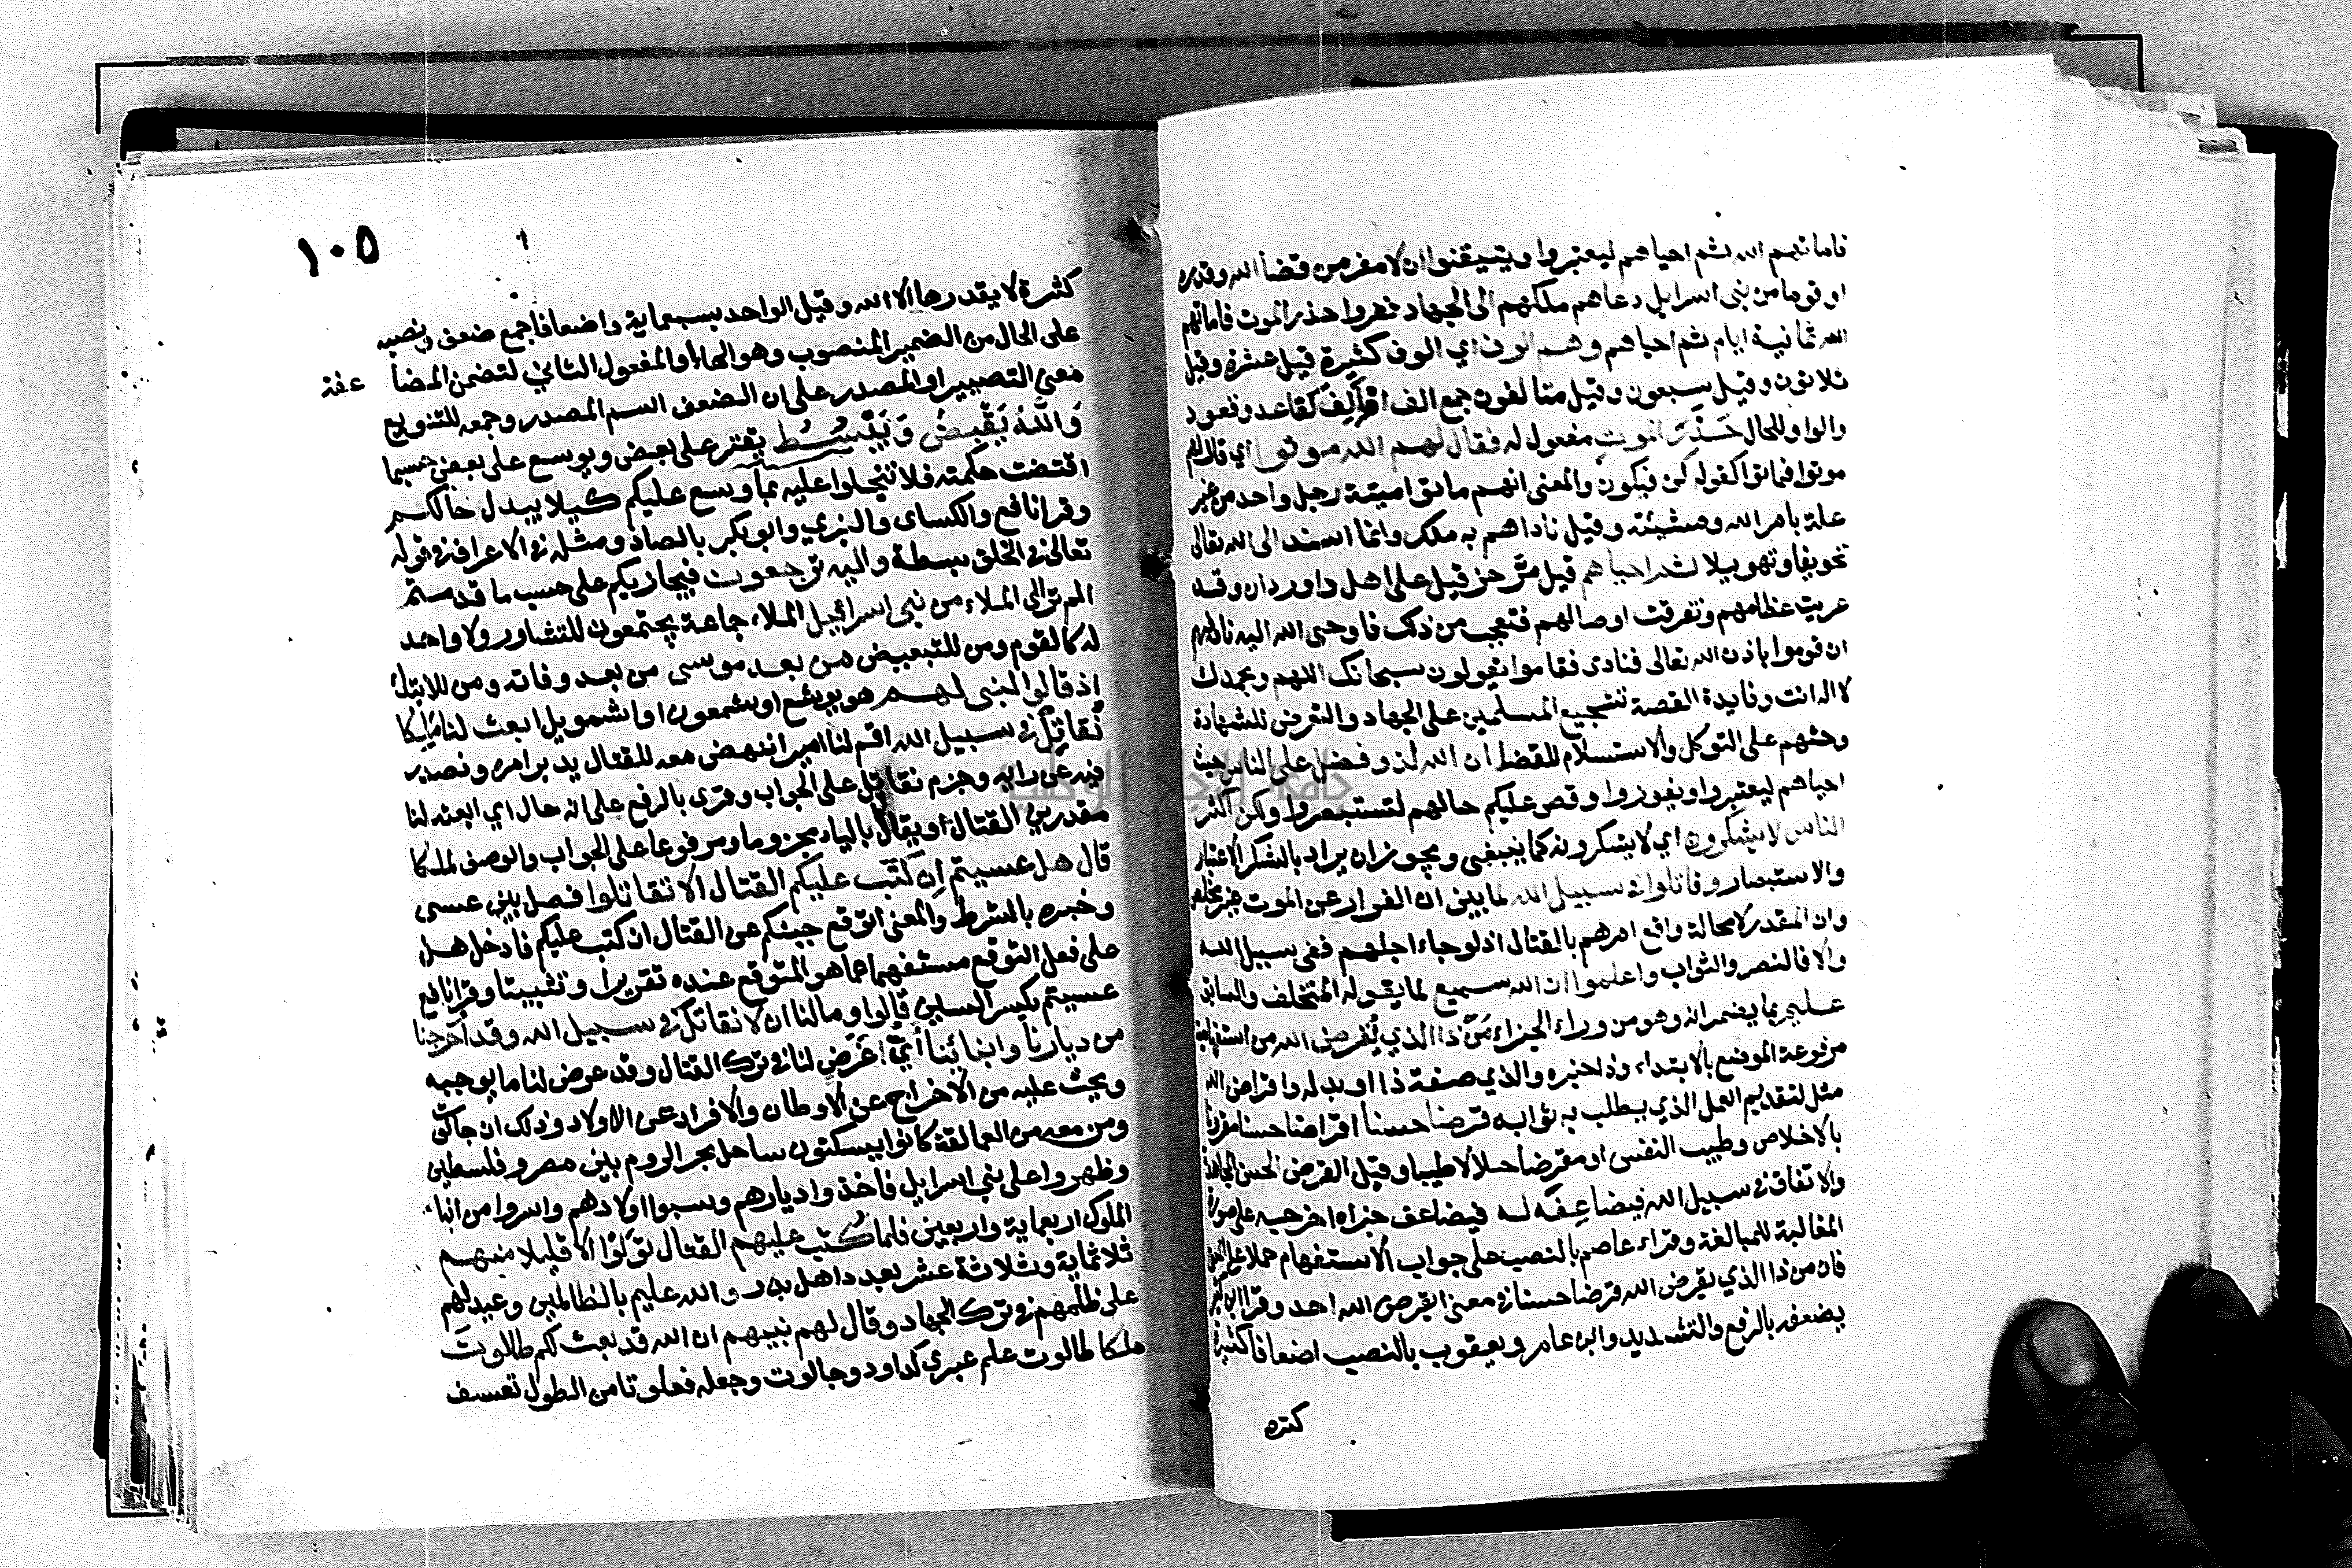 فاماتهم الله ثم احياهم ليعتبروا ويتيقنوا ان لامفر من قضا الله وقدره
او قوما من بنى اسرايل دعاهم ملكهم الى الجهاد ففروا حذر الموت فاماتهم
الله ثمانية ايام ثم احياهم وهم الوف اي الوف كثيرة قيل عشرة وقيل
ثلاثون وقيل سبعون وقيل متالفون جمع الف او آلف كقاعد وقعود
والواو للحال حَذَرَ الموتِ مفعول له فقال لهم الله موتوا اي قال لهم
موتوا فماتوا كقوله كن فيكون والمعنى انهم ماتوا ميتة رجل واحد من غير
علة بامر الله ومشيئته وقيل ناداهم به ملك وانما اسند الى الله تعالى
تخويفا وتهويلا ثم احياهم قيل مرَّ حزقيل على اهل داوردان وقد
عريت عظامهم وتفرقت اوصالهم فتعجب من ذلك فاوحى الله اليه ناد فيهم
ان قوموا باذن الله تعالى فنادى فقاموا يقولون سبحانك اللهم وبحمدك
لا اله انت وفايدة القصة تشجيع المسلمين على الجهاد والتعرض للشهادة
وحثهم على التوكل والاستسلام للقضا ان الله لذو فضل على الناس حيث
احياهم ليعتبروا ويفوزوا وقص عليكم حالهم لتستبصروا ولكن اكثر
الناس لا يشكرون اي لا يشكرونه كما ينبغى ويجوز ان يراد بالشكر الاعتبار
والاستبصار وقاتلوا فى سبيل الله لما بين ان الفرار عن الموت غير مخلص
وان المقدر لا محالة واقع امرهم بالقتال اذ لو جاء اجلهم ففى سبيل الله
والا فالنصر والثواب واعلموا ان الله سميع لما يقوله المتخلف والسابق
عليم بما يضمرانه وهو من وراء الجزاء مَنْ ذا الذي يُقرض الله من استفهامية
مرفوعة الموضع بالابتداء وذا خبره والذي صفة ذا او بدله واقراض الله
مثل لتقديم العمل الذي يطلب به ثوابه قرضا حسنا اقراضا حسنا مقرونا
بالاخلاص وطيب النفس او مقرضا حلالا طيبا وقيل القرض الحسن المجاهدة
والانفاق فى سبيل الله فيضاعِفَه له فيضاعف جزاه اخرجه على صورة
المغالبة للمبالغة وقراء عاصم بالنصب على جواب الاستفهام حملا على المعنى
فان من ذا الذي يقرض الله قرضا حسنا فى معنى ايقرض الله احد وقرا ابن كثير
يضعفه بالرفع والتشديد وابن عامر ويعقوب بالنصب اضعافا كثيرة
كثره
١٠٥
كثرة لا يقدرها الا الله وقيل الواحد بسبعماية واضعافا جمع ضعف ونصبه
على الحال من الضمير المنصوب وهو الهاء او المفعول الثاني لتضمن المضا
عفة
معنى التصيير او المصدر على ان الضعف اسم المصدر وجمعه للتنويع
وَاللَّهُ يَقْبِضُ وَيَبْسُطُ يقتر على بعض ويوسع على بعض حسبما
اقتضت حكمته فلا تبخلوا عليه بما وسع عليكم كيلا يبدل حالكم
وقرا نافع والكساى والبزي وابو بكر بالصاد ومثله فى الاعراف فى قوله
تعالى فى الخلق بسطة واليه ترجعون فيجازيكم على حسب ما قدمتم
الم تر الى الملاء من نبى اسرائيل الملاء جماعة يجتمعون للتشاور ولا واحد
له كالقوم ومن للتبعيض من بعد موسى من بعد وفاته ومن للابتدا
اذ قالوا لنبى لهم هو يوشع او شمعون او اشمويل ابعث لنا ملكا
نُقاتِلْ فى سبيل الله اقم لنا اميرا ننهض معه للقتال يدبر امره ونصدر
فيه عن رايه وجزم نقاتل على الجواب وقرى بالرفع على انه حال اي ابعثه لنا
مقدرين القتال او يقاتل بالياء مجزوما ومرفوعا على الجواب والوصف لملكا
قال هل عسيتم اِن كُتِبَ عليكم القتال الا تقاتلوا فصل بين عسى
وخبره بالشرط والمعنى اتوقع جبنكم عن القتال ان كتب عليكم فادخل هل
على فعل التوقع مستفهما عما هو المتوقع عنده تقريرا وتثبيتا وقرا نافع
عسيتم بكسر السين قالوا وما لنا ان لا نقاتل فى سبيل الله وقد اخرجنا
من ديارنا وابنائنا أيُّ غَرَضٍ لنا فى ترك القتال وقد عرض لنا ما يوجبه
ويحث عليه من الاخراج عن الاوطان والافراد عن الاولاد وذلك ان جالوت
ومن معه من العمالقة كانوا يسكنون ساحل بحر الروم بين مصر وفلسطين
وظهروا على بني اسرايل فاخذوا ديارهم وسبوا اولادهم واسروا من ابنا
الملوك اربعماية واربعين فلما كُتب عليهم القتال تولوا الا قليلا منهم
ثلاثماية وثلاثة عشر بعدد اهل بدر والله عليم بالظالمين وعيد لهم
على ظلمهم فى ترك الجهاد وقال لهم نبيهم ان الله قد بعث لكم طالوت
ملكا طالوت علم عبري كداود وجالوت وجعله فعلوتا من الطول تعسف
جامعة النجاح الوطنية